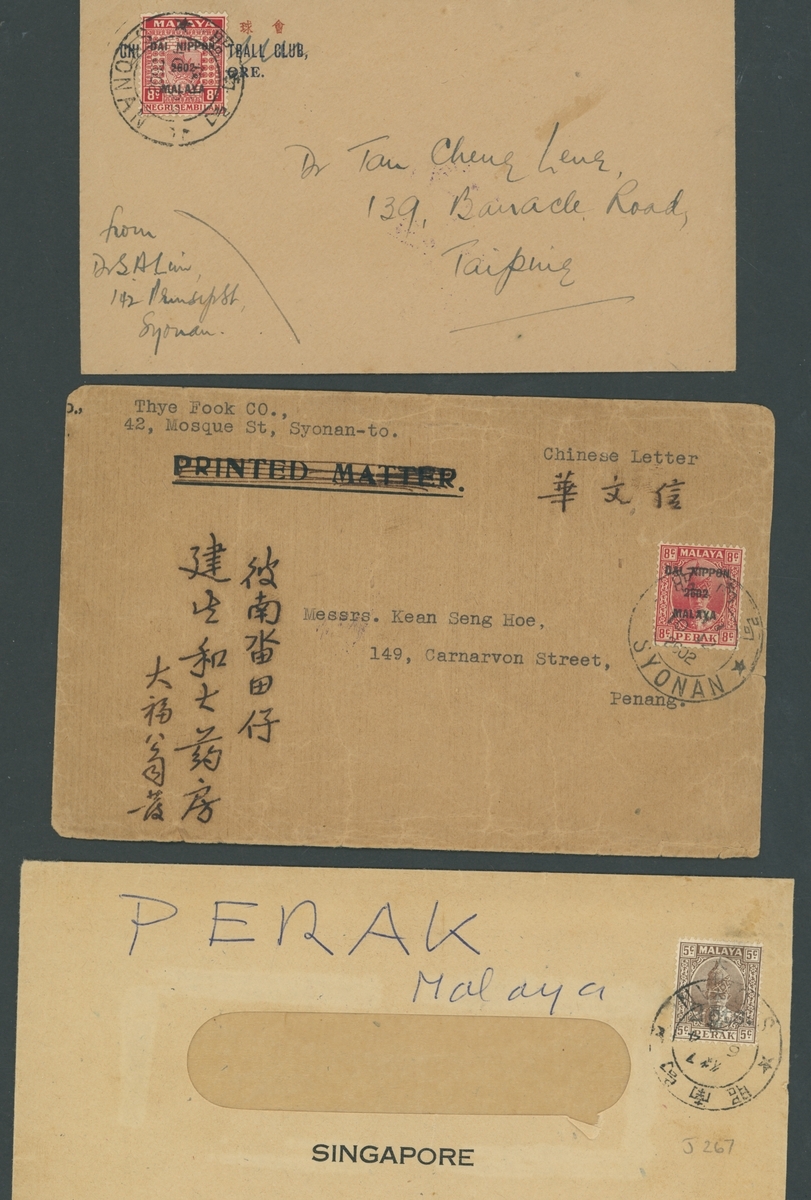 球 會
TBALL CLUB,
ORE.
MALAYA
DAI NIPPON
2602
MALAYA
8c 8c
NEGRI SEMBILAN
Dr Tan Cheng Leng,
139, Barrack Road,
Taiping
from
Dr S A Lim,
142 Prinsep St,
Syonan.
Thye Fook CO.,
42, Mosque St, Syonan-to.
PRINTED MATTER.
Chinese Letter
華文信
8c MALAYA 8c
DAI NIPPON
2602
MALAYA
8c PERAK 8c
SYONAN
Messrs. Kean Seng Hoe,
149, Carnarvon Street,
Penang.
南 田仔
建 和大药房
大福
PERAK
Malaya
5c MALAYA 5c
5c PERAK 5c
昭南
SINGAPORE
J 267